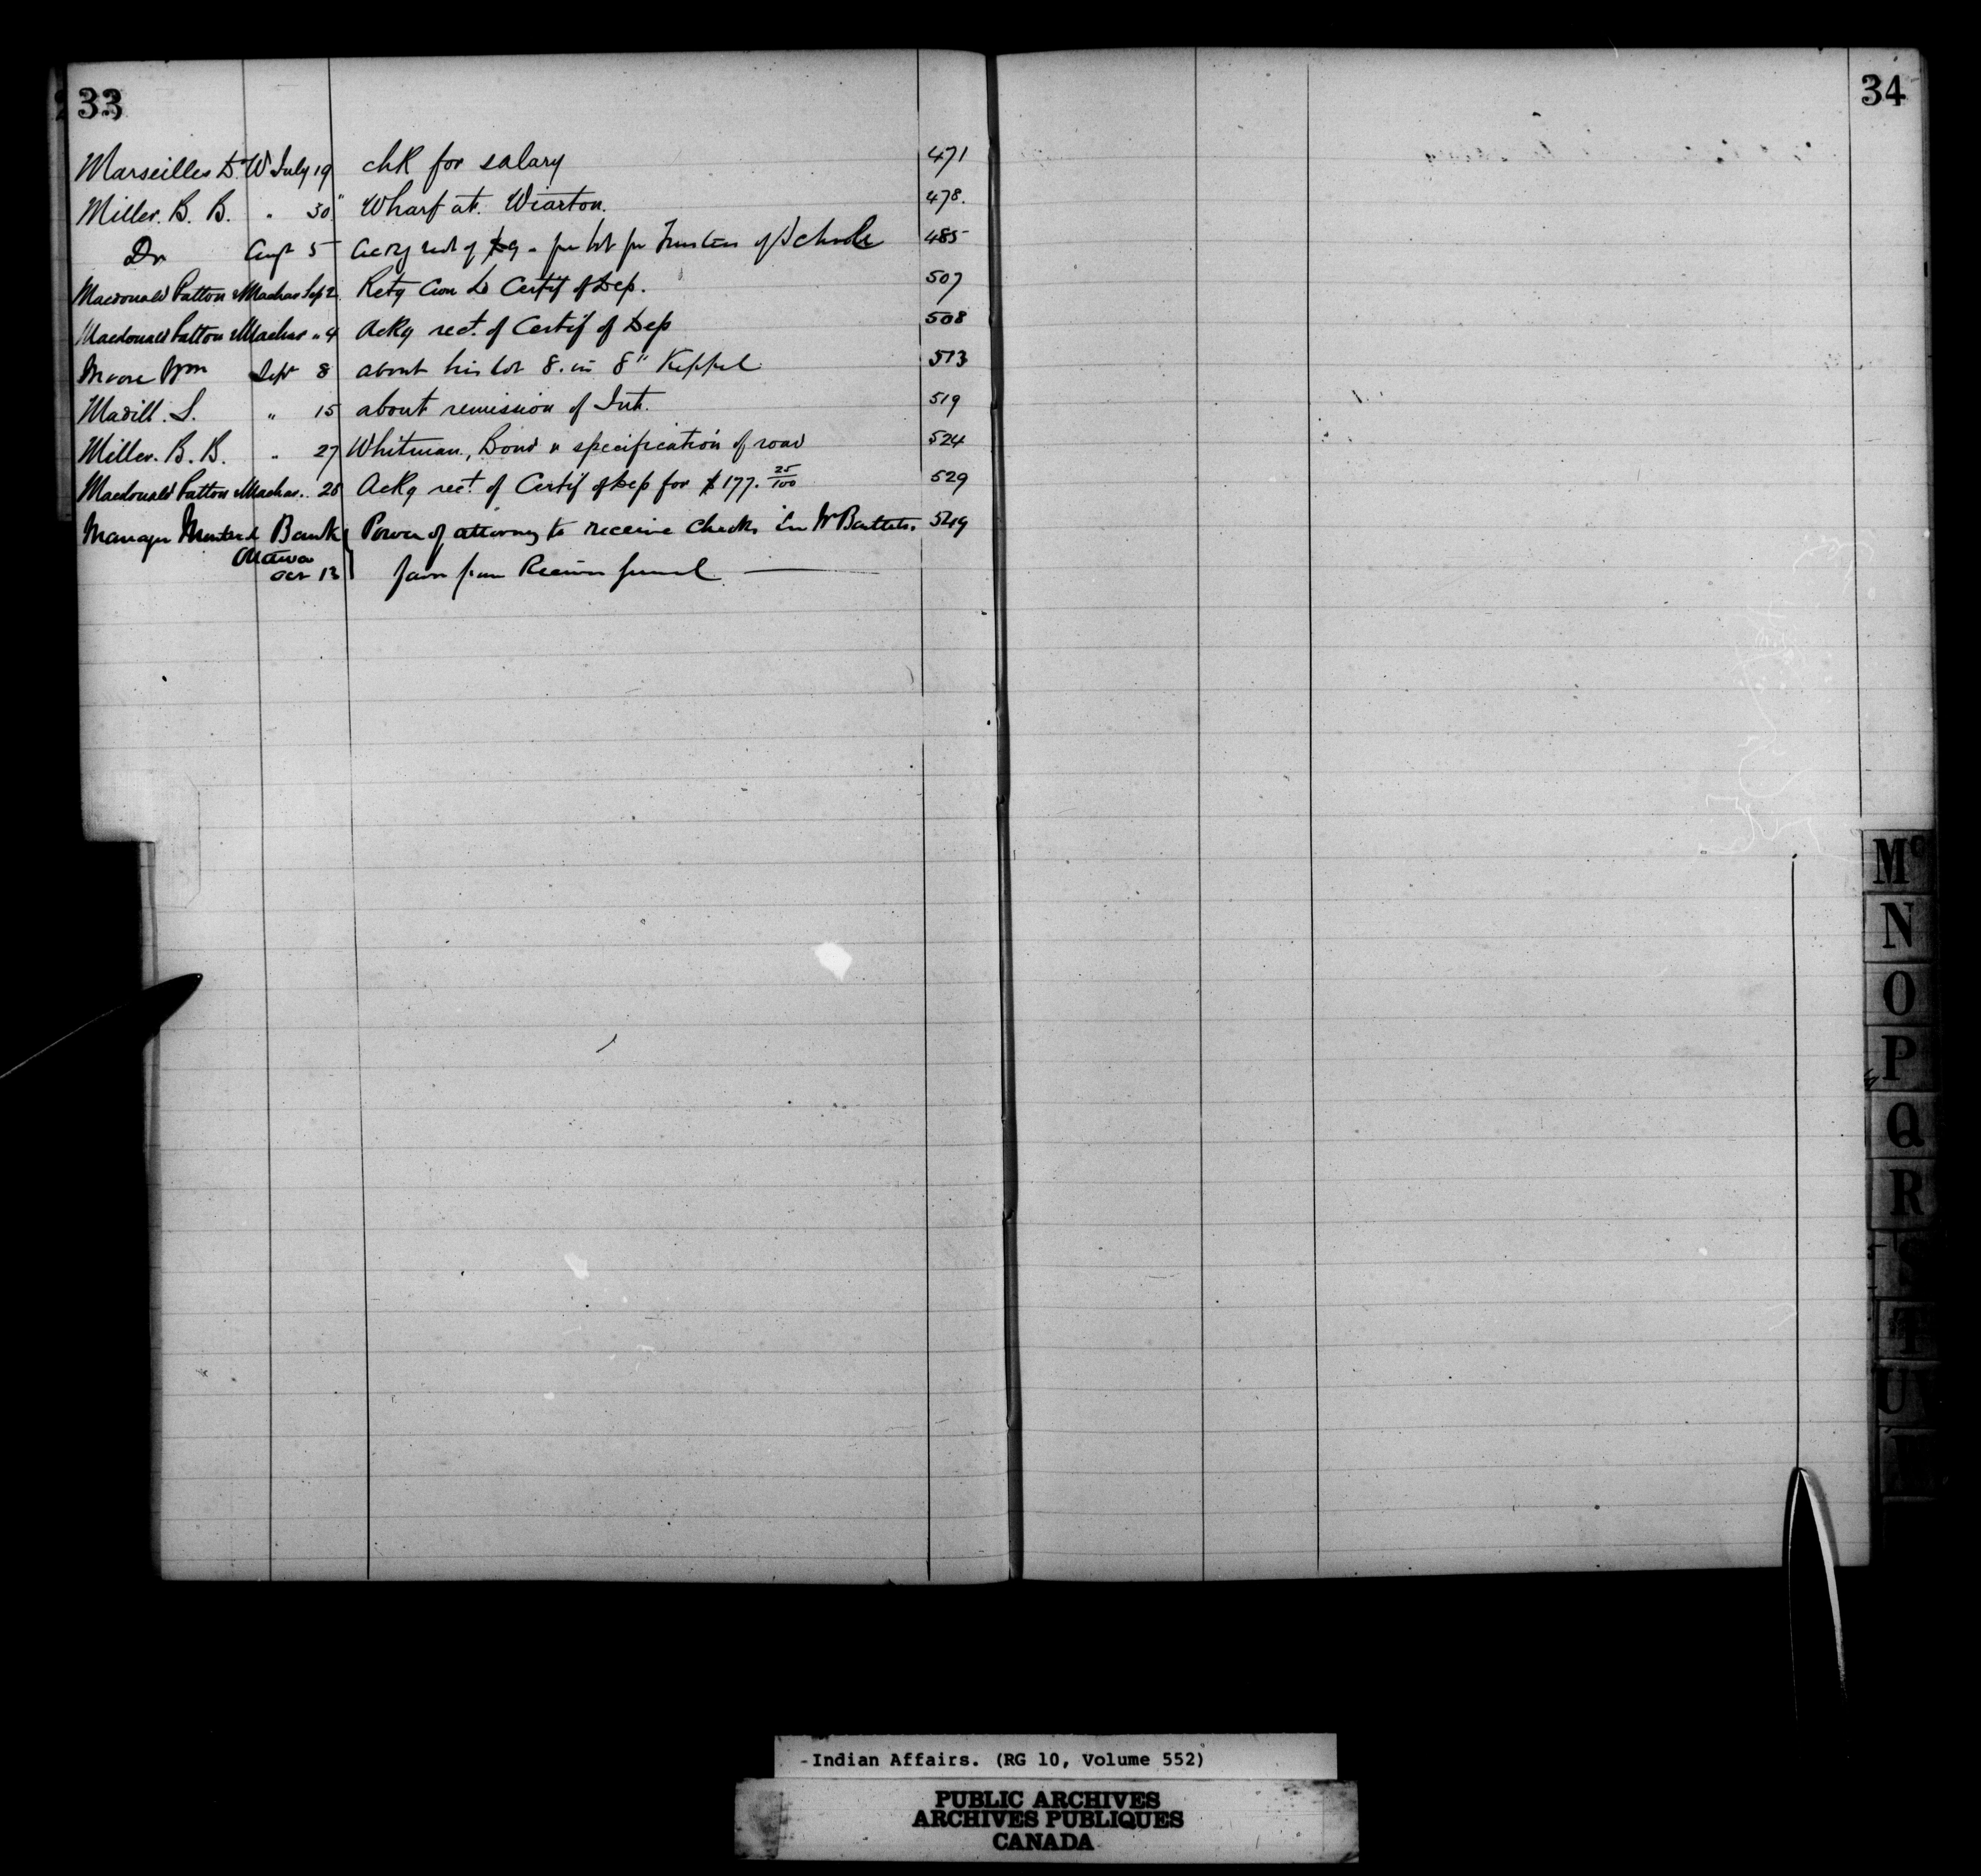 33
34
Marseilles D. W July 19 chk for salary 471
Miller. B. B. " 30" Wharf at. Wiarton. 478.
Do Augt 5 Ackg rect of $9 - per for Trustees of Schools 485
Macdonald Patton & Machar Sep 2. Retg Con Ld Certif of Dep. 507
Macdonald Patton & Machar " 4 Ackg rect. of Certif of Dep 508
Moore Wm Sept 8 about his lot 8. in 8" Keppel 513
Madill. S. " 15 about remission of Int. 519
Miller. B. B. " 27 Whitman, Bond & specification of road 524
Macdonald Patton & Machar. " 28 Ackg rect. of Certif of Dep for $177. 25/100 529
Manager Montreal Bank Power of attorney to receive checks in W Bartlets. 549
Ottawa
Oct 13 favor from Receiver General
Mc
N
O
P
Q
R
S
T
U
Indian Affairs. (RG 10, Volume 552)
PUBLIC ARCHIVES
ARCHIVES PUBLIQUES
CANADA